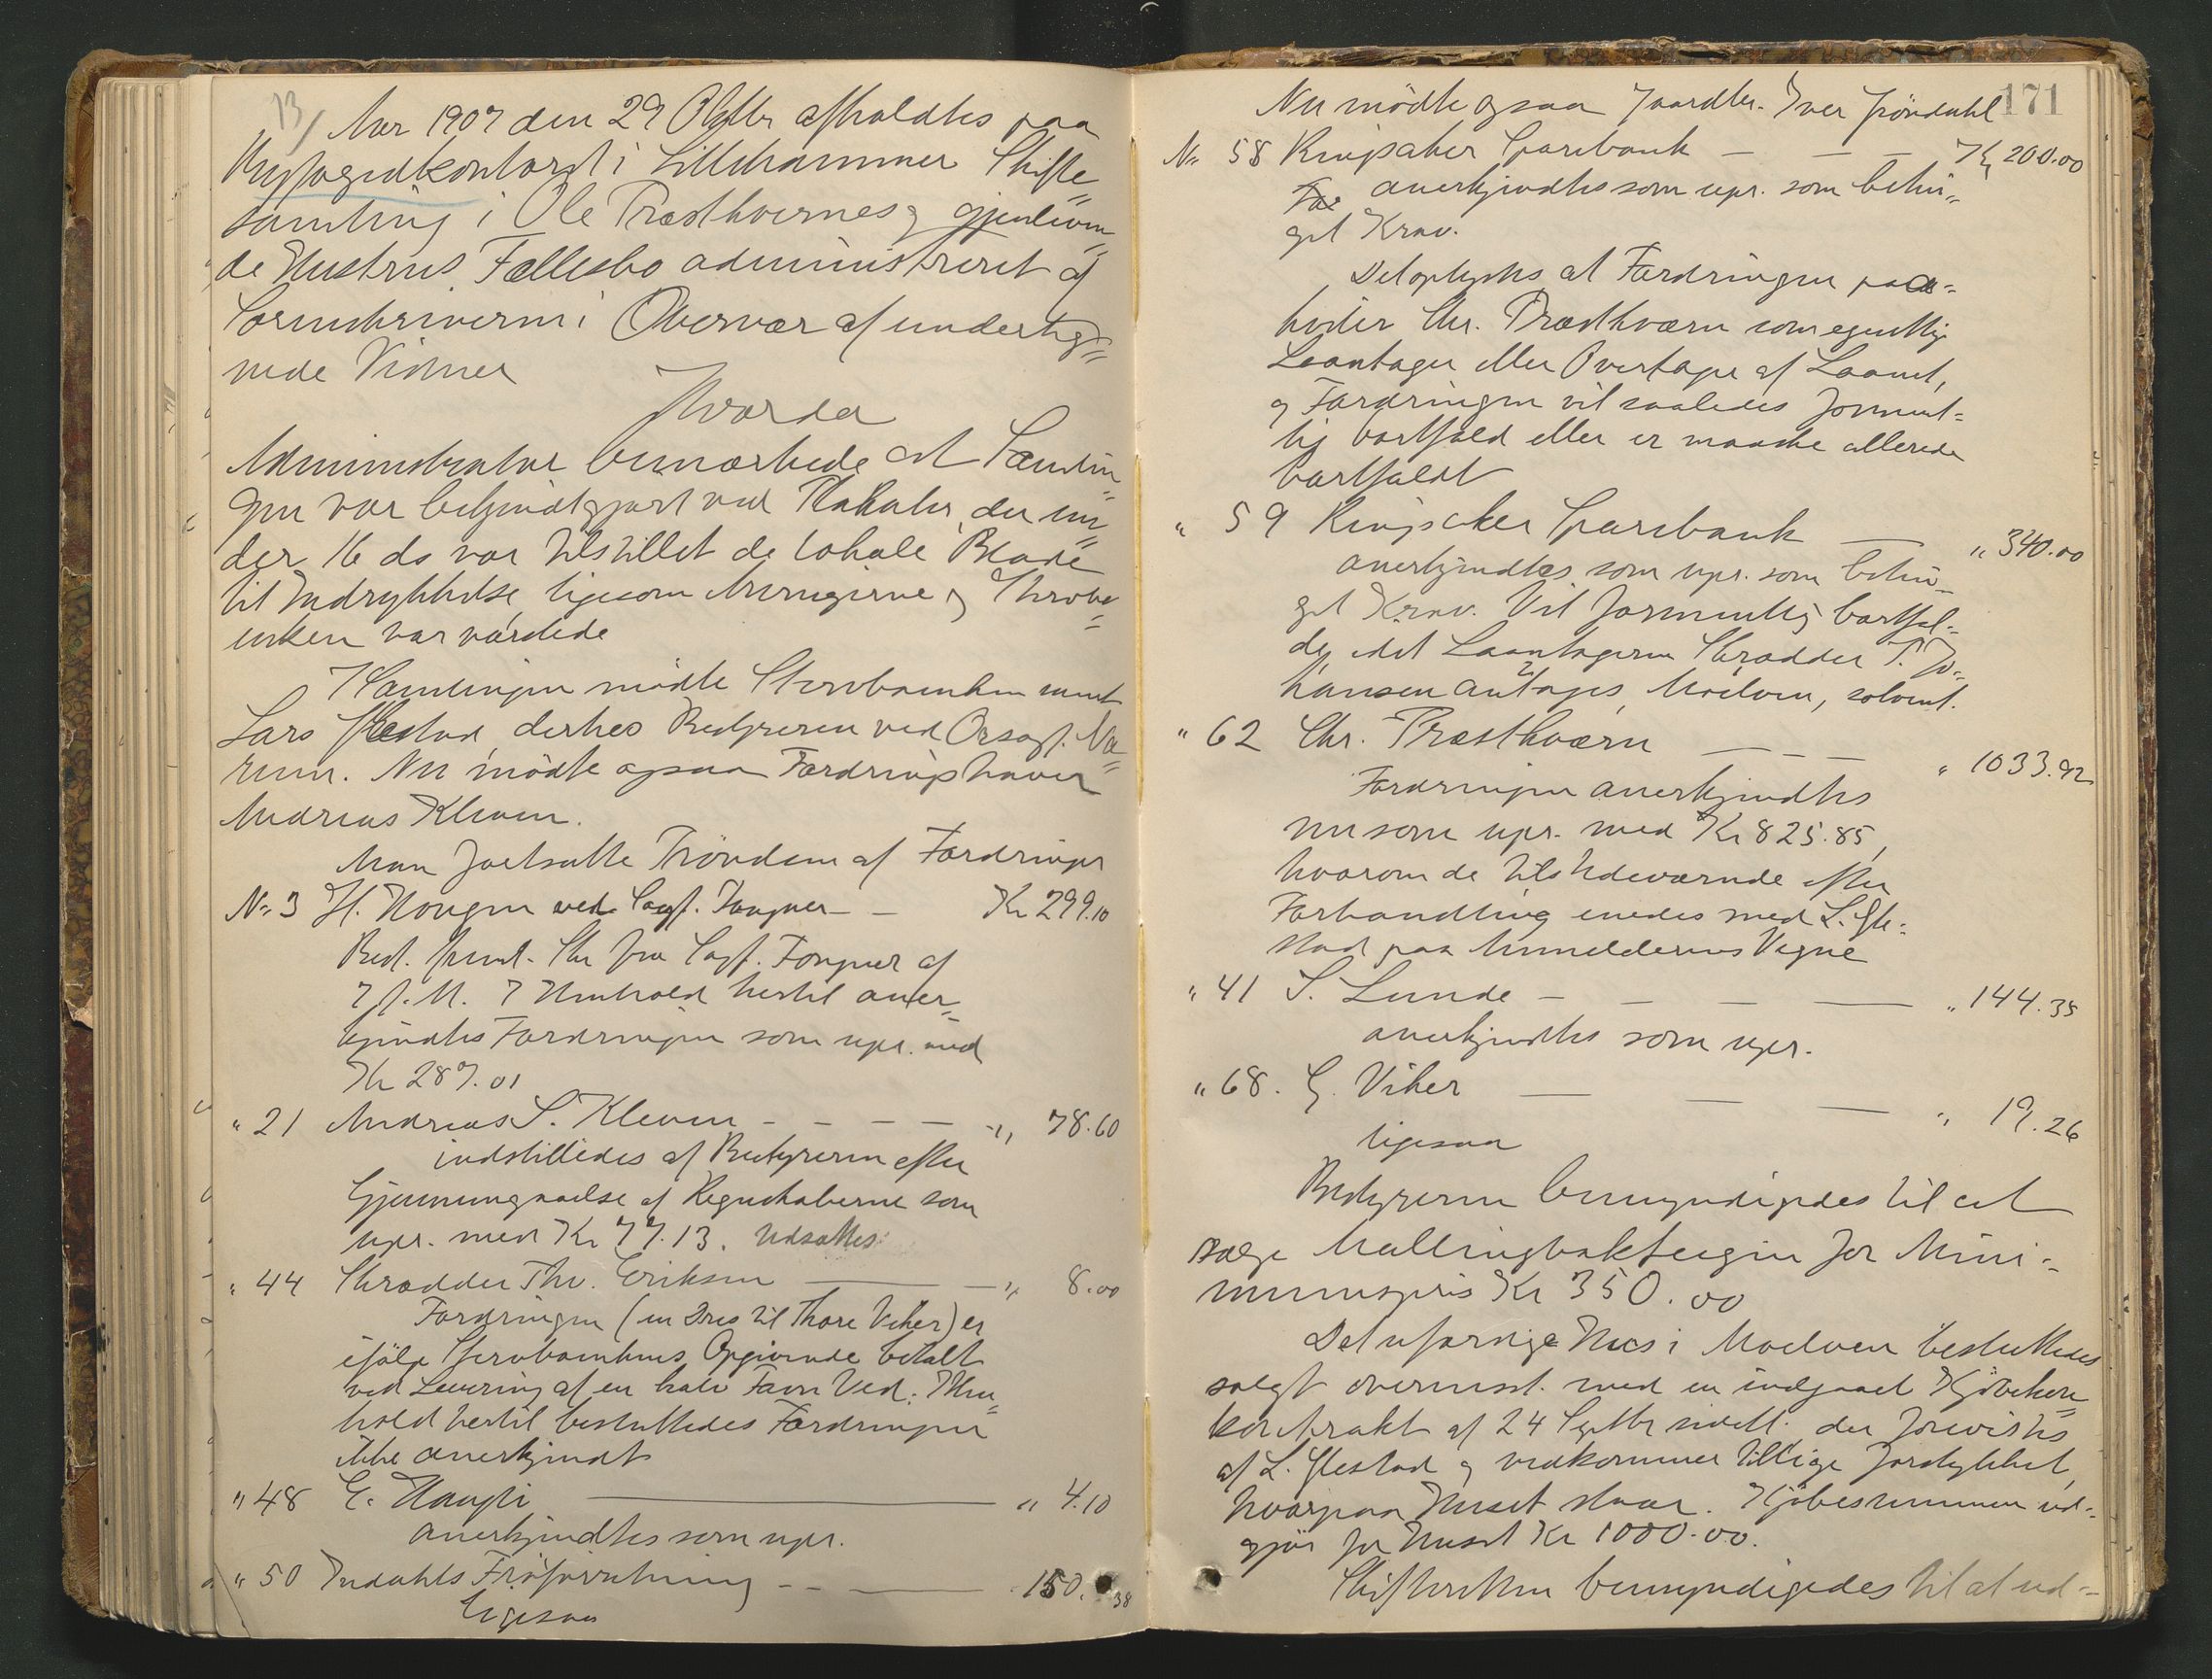 13/ Aar 1907 den 29 Oktbr afholdtes paa
Byfogedkontoret i Lillehammer Skifte=
samling i Ole Præsthvernes og gjenleven=
de Hustrus Fællesbo administreret af
Sorenskriveren i Overvær af underteg=
nede Vidner
Hvorda
Administrator bemærkede at Samlin=
gen var bekjendtgjort ved Plakater, der un=
der 16 ds var tilstillet de lokale Blade
til Indrykkelse, ligesom Arvingerne og Skrobo=
enken var varslede
I Samlingen mødte Stervboenken samt
Lars Flestad, derhos Bestyreren ved Orsagf. Na=
rum. Nu mødte ogsaa Fordringshaver
Andreas Kleven.
Man fortsatte Prøvelsen af Fordringer
No 3 H. Hougen ved Sagf. Tougner - - Kr 299.10
Best. freml. Skr fra Sagf. Tougner af
7 f. M. I Henhold hertil aner=
kjendtes Fordringen som upr. med
Kr 287.01
" 21 Andreas S. Kleven - - - - - " 78.60
indstilledes af Bestyreren efter
Gjennemgaaelse af Regnskaberne som
upr. med Kr 77.13. Udsattes
" 44 Skrædder Thv. Eriksen — - " 8.00
Fordringen (en Dres til Thore Viker) er
ifølge Stervboenkens Opgivende betalt
ved Levering af en halv Favn Ved. I Hen=
hold hertil besluttedes Fordringen
ikke anerkjendt
" 48 E. Haugli — " 4.10
anerkjendtes som upr.
" 50 Indahls Frøforretning - - — 150.38
ligesaa
171
Nu mødte ogsaa Gaardbr. Iver Frøndahl
No 58 Ringsaker Sparebank — — — Kr 200.00
For anerkjendtes som upr. som betin=
get Krav.
Det oplystes at Fordringen paa=
hviler Chr. Præsthværn som egentlig
Laantager eller Overtager af Laanet,
og Fordringen vil saaledes forment=
lig bortfald eller er maaske allerede
bortfaldt
" 59 Ringsaker Sparebank — " 340.00
anerkjendtes som upr. som betin=
get Krav. Vil formentlig bortfal=
de, idet Laantageren Skrædder P. Jo=
hansen antages, Moelven, solvent.
" 62 Chr. Præsthværn — — — " 1033.92
Fordringen anerkjendtes
nu som upr. med Kr 825.85,
hvorom de tilstedeværende efter
Forhandling enedes med L. Fle=
stad paa Anmelderens Vegne
" 41 S. Lunde - — — — " 144.35
anerkjendtes som upr.
" 68. G. Viker — — — " 19.26
ligesaa
Bestyreren bemyndigedes til at
sælge Mallingbakteigen for Mini=
mumspris Kr 350.00
Det uferdige Hus i Moelven besluttedes
solgt overensst. med en indgaaet Kjøbekon=
kontrakt af 24 Septbr sidstl. der forevistes
af L. Flestad og vedkommer tillige Jordstykket,
hvorpaa Huset staar. Kjøbesummen ud=
gjør for Huset Kr 1000.00.
Skifteretten bemyndigedes til at ud=